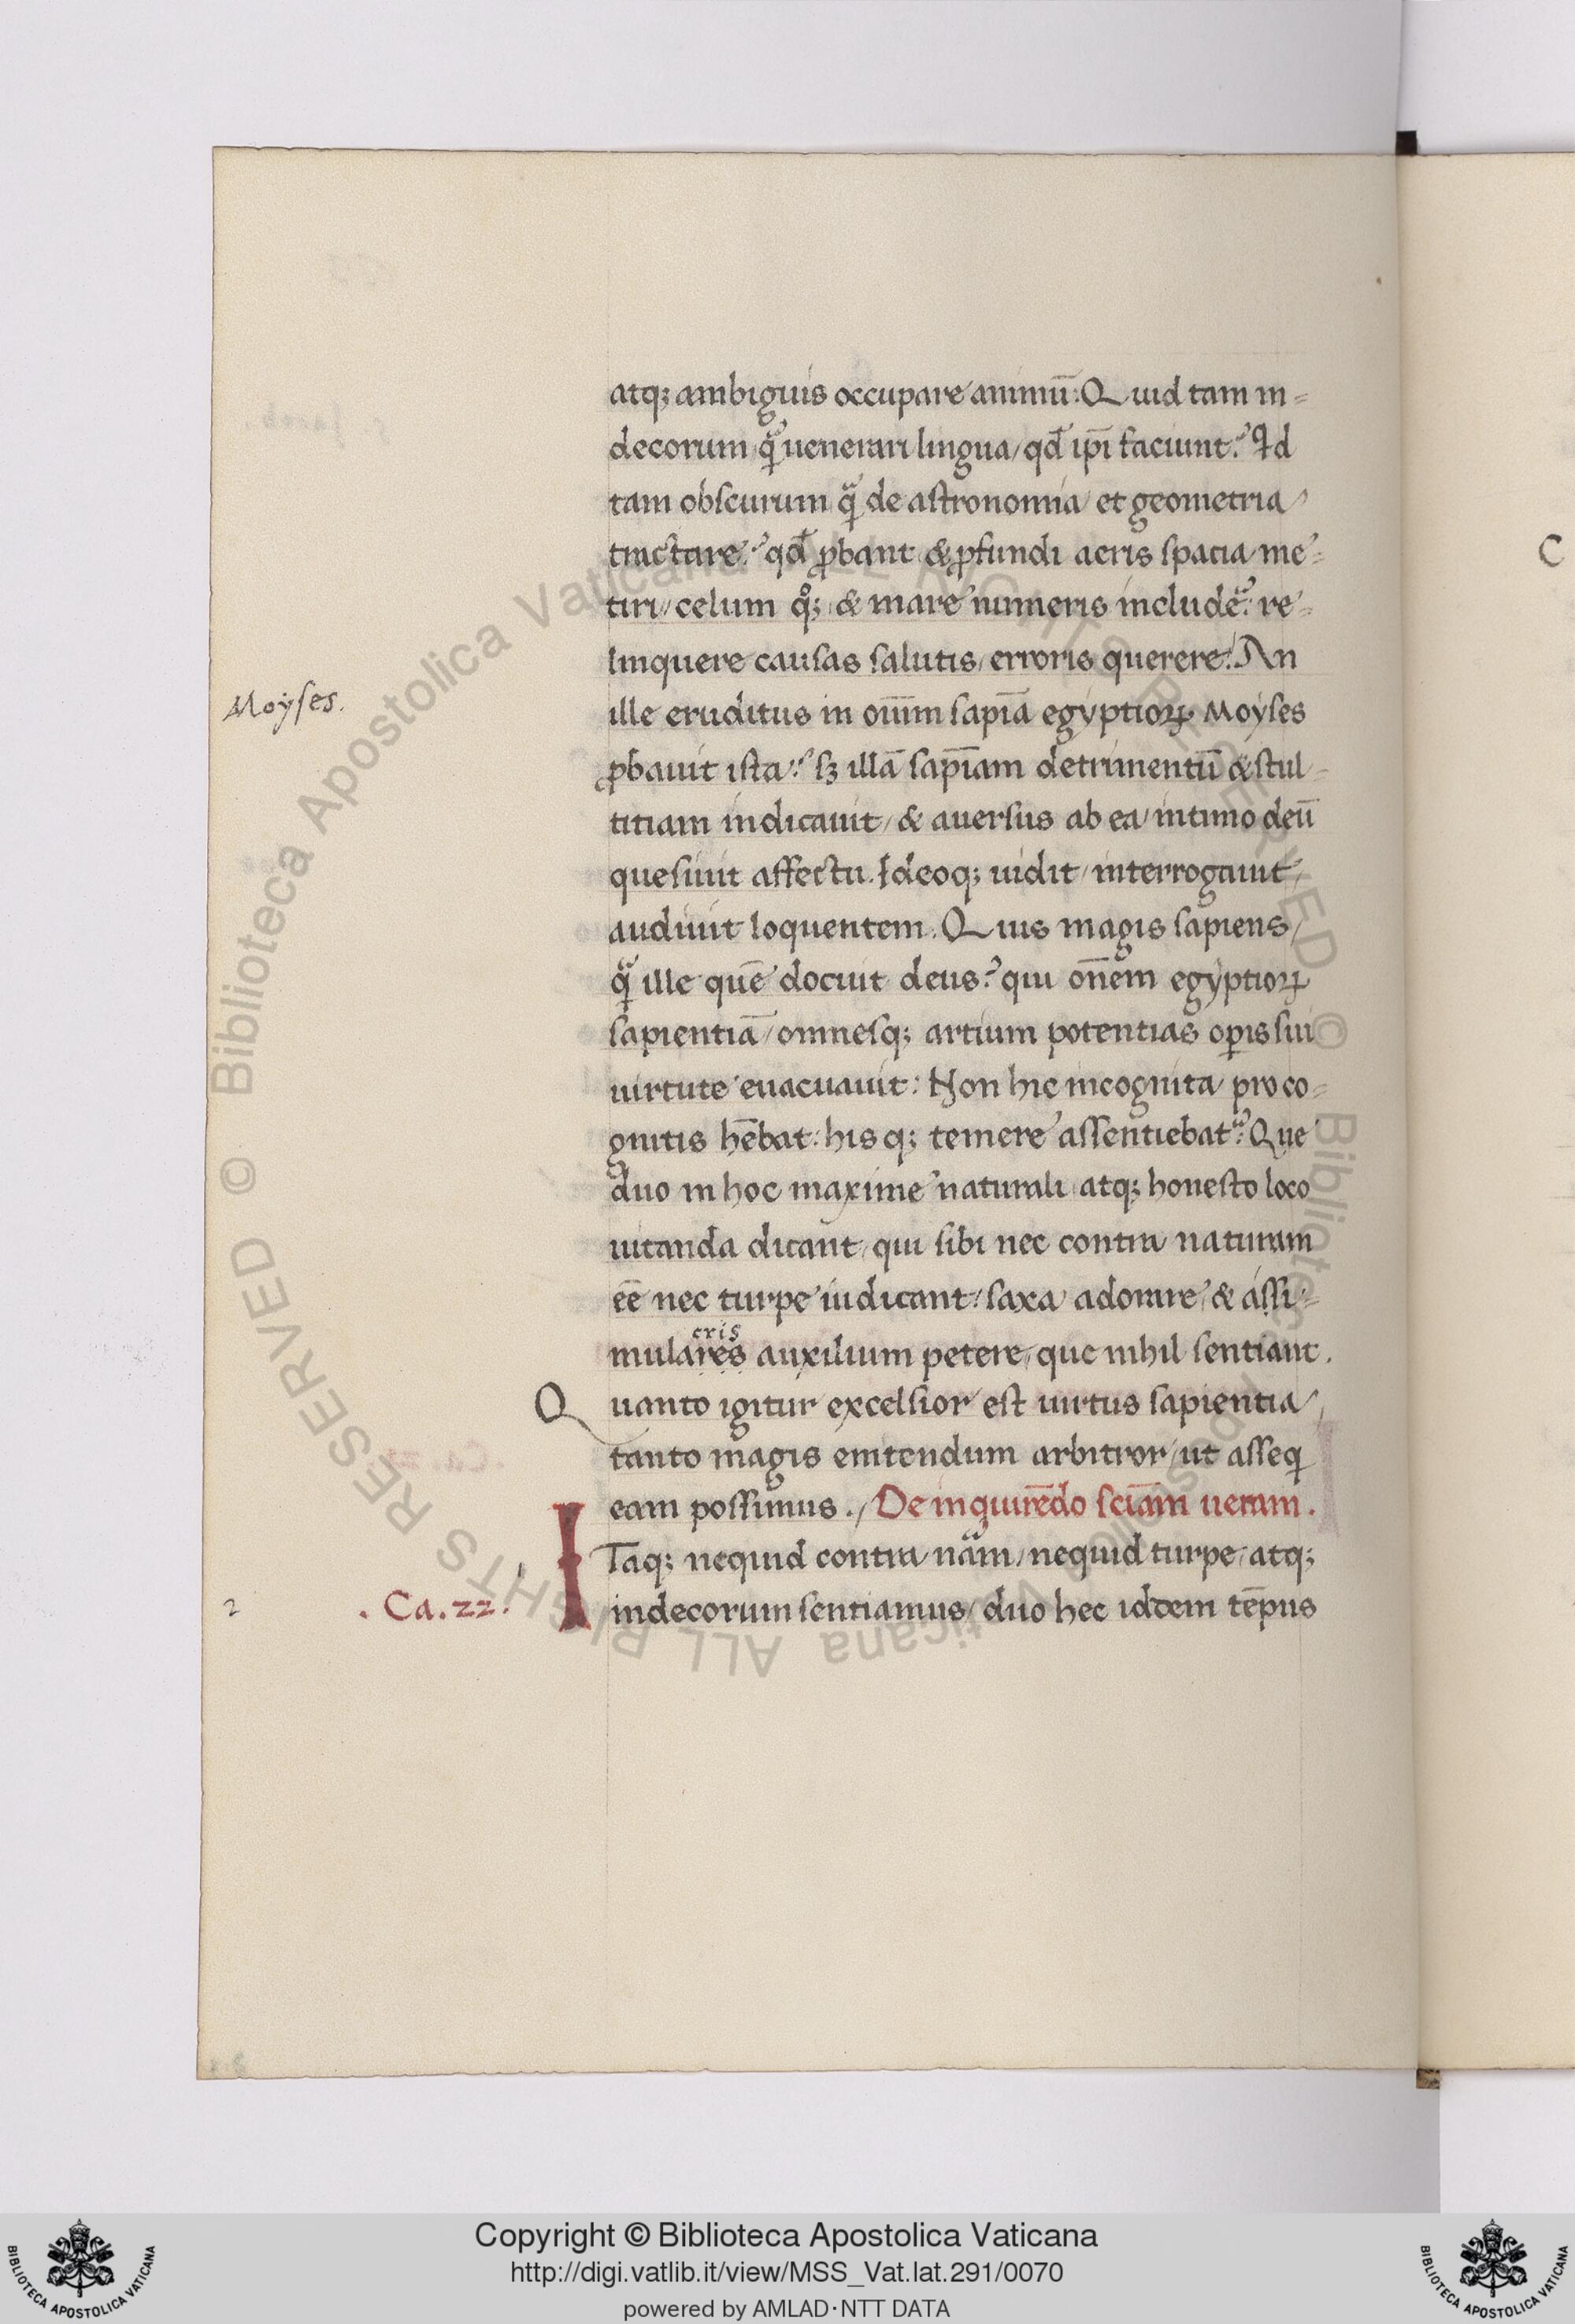 atq; ambiguis occupare animū: Quid tam in-
decorum qͣ̃ uenerari lingua/ qd̄ ip̄i faciunt? Qd
tam obscurum qͣ̃ de astronomia et geometria
tractare? qd̄ ꝓbant & ꝓfundi aeris spatia me-
tiri/ celum qͦ; & mare numeris includẽ: re-
linquere causas salutis/ erroris querere? An
ille eruditus in oīm sapīa egyptioꝝ Moyses
ꝓbauit ista? sꝫ illā sapīam detrimentū & stul-
titiam indicauit/ & auersus ab ea/ intimo deū
quesiuit affectu. Ideoq; uidit/ interrogauit/
audiuit loquentem. Quis magis sapiens/
qͣ̃ ille quē docuit deus? qui on̄em egyptioꝝ
sapientiā/ omnesq; artium potentias oꝑis sui
uirtute euacuauit: Non hic incognita pro co-
gnitis hēbat: hisq; temere assentiebat᷑: Que
duo in hoc maxime naturali atq; honesto loco
uitanda dicant/ qui sibi nec contra naturam
eē nec turpe iudicant: saxa adorare/ & assi-
cris
mulares auxilium petere/ que nihil sentiant.
Quanto igitur excelsior est uirtus sapientia/
tanto magis enitendum arbitror/ ut asseq̄
eam possimus./ De inquirēdo scīam ueram.
ITaq; nequid contra nām/ nequid turpe/ atq;
indecorum sentiamus/ duo hec iddem tēpus
Moyses.
2
. Ca. 22.
C
© Biblioteca Apostolica Vaticana ALL RIGHTS RESERVED © Biblioteca Apostolica Vaticana ALL RIGHTS RESERVED
BIBLIOTECA APOSTOLICA VATICANA
Copyright © Biblioteca Apostolica Vaticana
http://digi.vatlib.it/view/MSS_Vat.lat.291/0070
powered by AMLAD·NTT DATA
BIBLIOTECA APOSTOLICA VATICANA